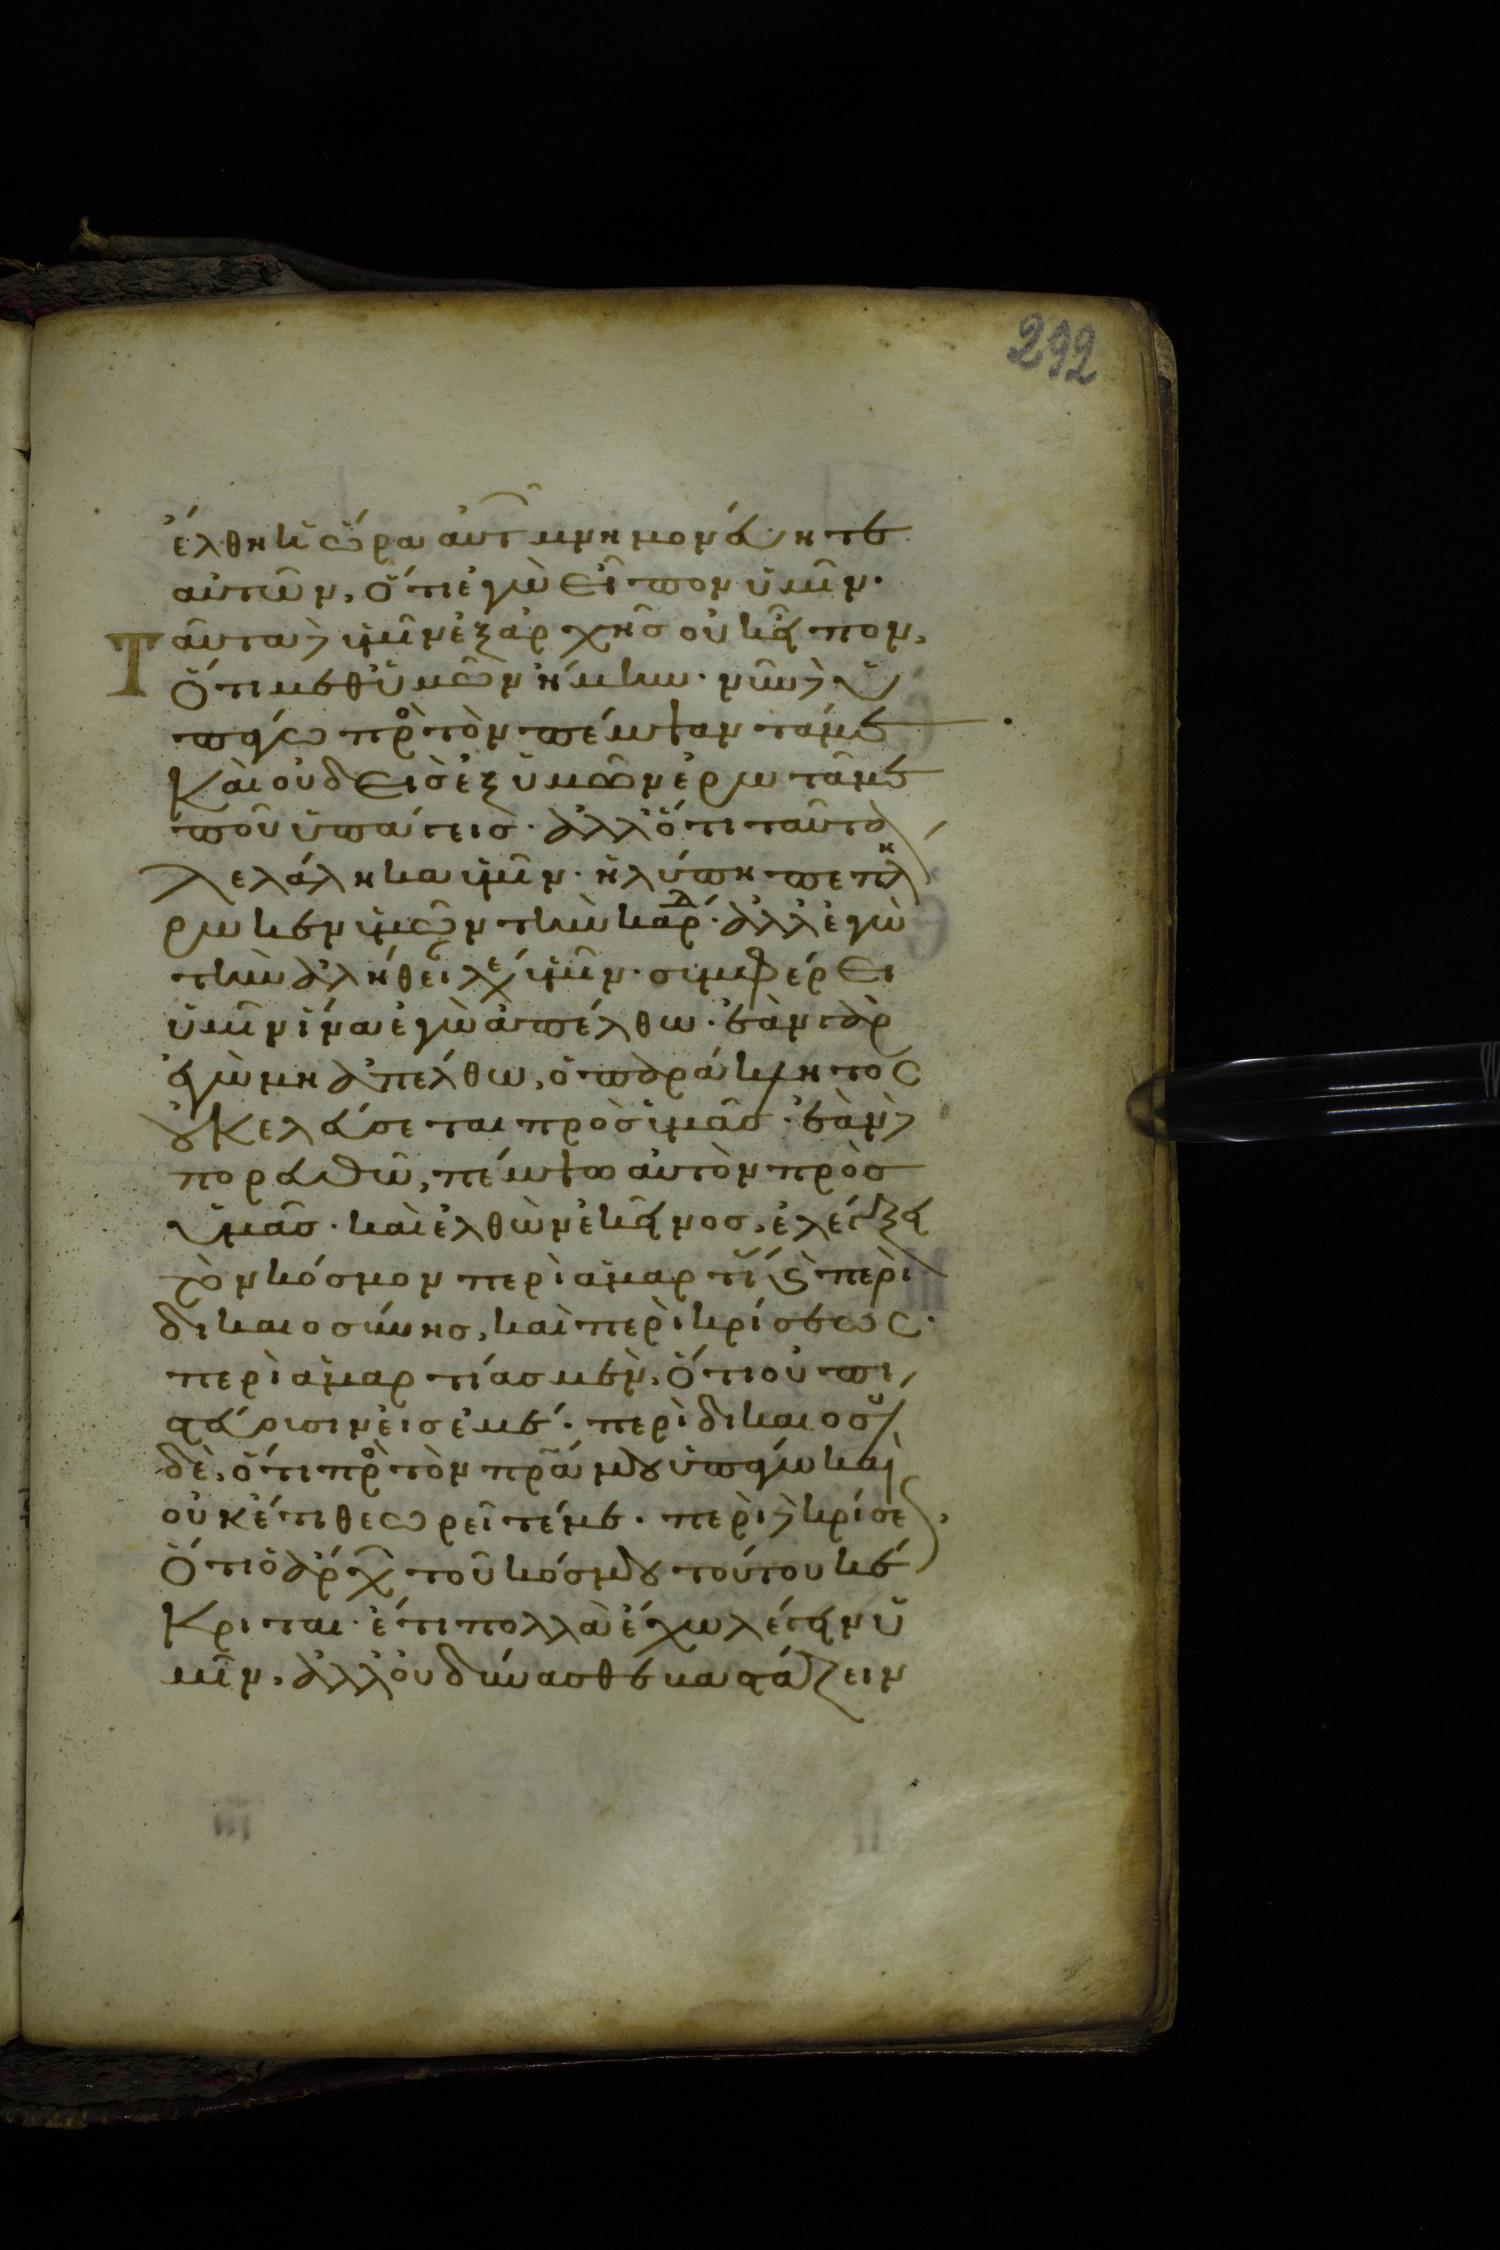 292
ἔλθη ἡ ὥρα αὐτῶν μνημονεύητε
αὐτῶν, ὅτι ἐγὼ εἶπον ὑμῖν.
Ταῦτα δὲ ὑμῖν ἐξ ἀρχῆς οὐκ εἶπον,
ὅτι μεθ' ὑμῶν ἤμην. νῦν δὲ ὑ
πάγω πρὸς τὸν πέμψαντά με
καὶ οὐδεὶς ἐξ ὑμῶν ἐρωτᾶ με
ποῦ ὑπάγεις. ἀλλ' ὅτι ταῦτα
λελάληκα ὑμῖν. ἡ λύπη πεπλη
ρωκεν ὑμῶν τὴν καρδ. ἀλλ' ἐγὼ
τὴν ἀλήθει λέγ ὑμῖν. συμφέρει
ὑμῖν ἵνα ἐγὼ ἀπέλθω. ἐὰν γὰρ
ἐγὼ μὴ ἀπέλθω, ὁ παράκλητος
οὐκ ἐλεύσεται πρὸς ὑμᾶς. ἐὰν δὲ
πορευθῶ, πέμψω αὐτὸν πρὸς
ὑμᾶς. καὶ ἐλθὼν ἐκεῖνος, ἐλέγξει
τὸν κόσμον περὶ ἁμαρτί καὶ περὶ
δικαιοσύνης, καὶ περὶ κρίσεως.
περὶ ἁμαρτίας μὲν, ὅτι οὐ πι
στεύουσιν εἰς ἐμέ. περὶ δικαιοσύ
δὲ, ὅτι πρὸς τὸν πρα μου ὑπάγω καὶ
οὐκέτι θεωρεῖτέ με. περὶ δὲ κρίσε
ὅτι ὁ ἄρχ τοῦ κόσμου τούτου κέ
κριται. ἔτι πολλὰ ἔχω λέγειν ὑ
μῖν, ἀλλ' οὐ δύνασθε βαστάζειν